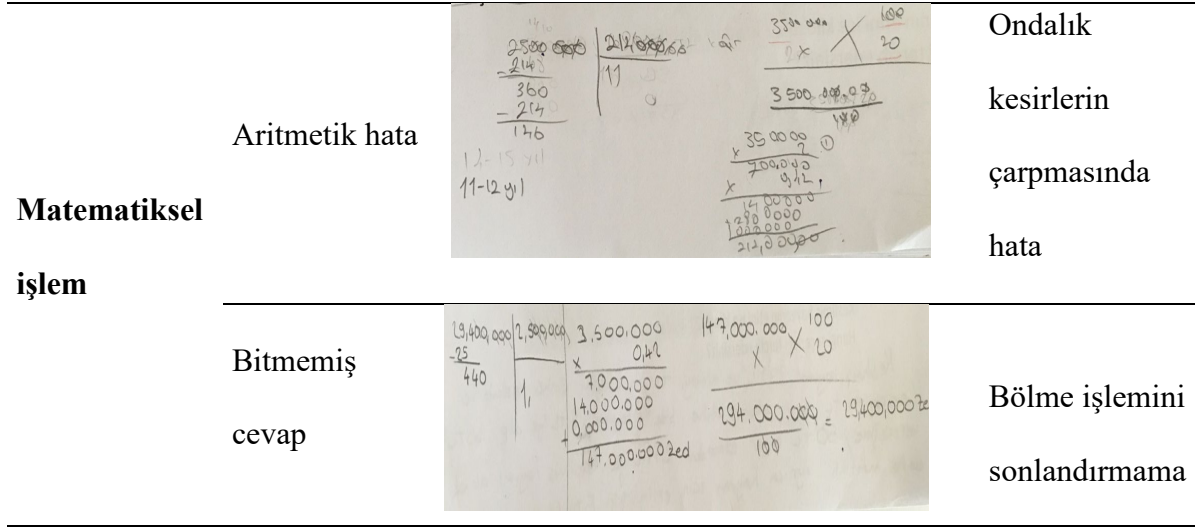 Matematiksel
işlem
Aritmetik hata
2500 000
214
360
- 214
146
11
12-15 yıl
11-12 yıl
3500 000
100
2x
20
350000
x 2
700.000
Ondalık
kesirlerin
çarpmasında
hata
Bitmemiş
cevap
29,400,000 2,500,000
-25
440
1,
3,500.000
x 0,42
7.000,000
14,000.000
0,000.000
147.000.000 zed
147,000.000 100
x 20
294.000.000 = 29,400,000
100
Bölme işlemini
sonlandırmama